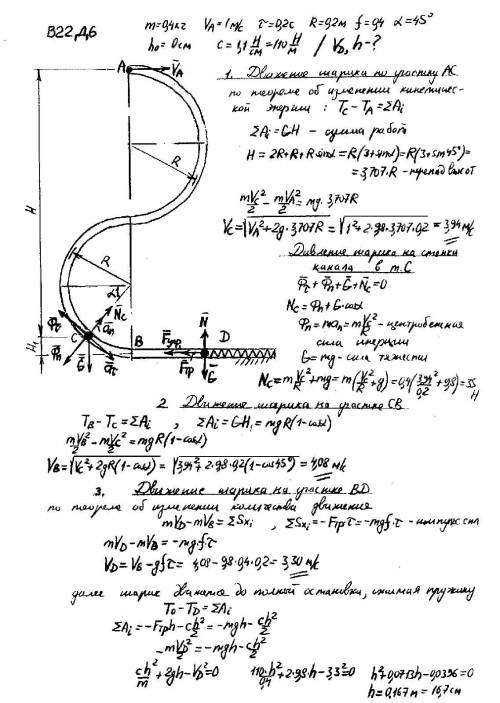 В22, Д6
m=0,4кг   V_A=1м/с   τ=0,2с   R=0,2м   f=0,4   α=45°
h₀=0см   c=1,1 Н/см =110 Н/м   / V_D, h-?
A   V̄_A
H   R   R   α
Φ̄τ   C   Φ̄n   N̄c   ān   Ḡ   āτ   H₁
B   F̄упр   F̄тр   N̄   D   Ḡ
1. Движение шарика по участку АС
по теореме об изменении кинетичес-
кой энергии : Tc - T_A = ΣAi
ΣAi = GH - сумма работ
H = 2R+R+R sinα = R(3+sinα) = R(3+sin45°) =
= 3,707·R - перепад высот
mVc²/2 - mV_A²/2 = mg·3,707R
Vc = √(V_A²+2g·3,707R) = √(1²+2·9.8·3,707·0,2) = 3,94 м/с
Давление шарика на стенки
канала в т.С
Φ̄τ+Φ̄n+Ḡ+N̄c=0
Nc = Φn+G·cosα
Φn = man = mVc²/R - центробежная
сила инерции
G = mg - сила тяжести
Nc = mVc²/R + mg = m(Vc²/R + g) = 0,4(3,94²/0,2 + 9,8) = 35 Н
2 Движение шарика на участке СВ
T_B - Tc = ΣAi ,   ΣAi = GH₁ = mgR(1-cosα)
mV_B²/2 - mVc²/2 = mgR(1-cosα)
V_B = √(Vc²+2gR(1-cosα)) = √(3,94²+2·9.8·0,2(1-cos45°)) = 4,08 м/с
3. Движение шарика на участке BD
по теореме об изменении количества движения
mV_D - mV_B = ΣSxi ,   ΣSxi = -Fтрτ = -mgf·τ - импульс сил
mV_D - mV_B = -mgf·τ
V_D = V_B - gfτ = 4,08 - 9.8·0.4·0.2 = 3,30 м/с
далее шарик движется до полной остановки, сжимая пружину
T₀ - T_D = ΣAi
ΣAi = -Fтрh - ch²/2 = -mgh - ch²/2
-mV_D²/2 = -mgh - ch²/2
ch²/m + 2gh - V_D² = 0   110·h²/0,4 + 2·9.8·h - 3,3² = 0   h²+0,0713h-0,0396=0
h=0,167м = 16,7см